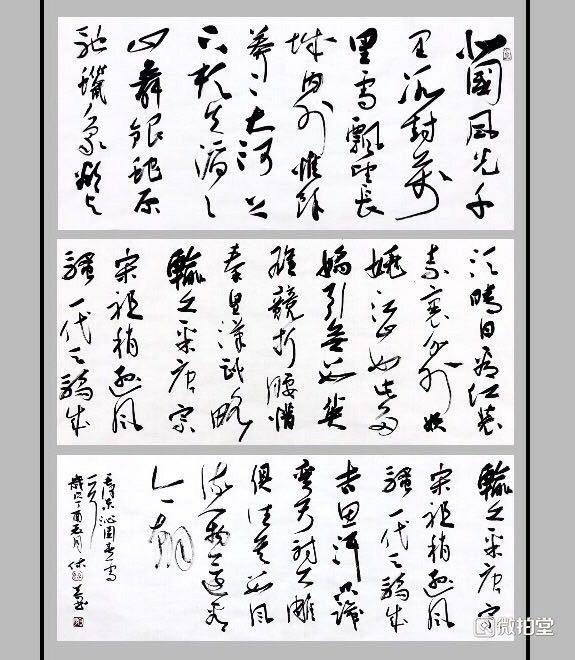 北國風光千
里冰封萬
里雪飄望長
城内外惟餘
莽〻大河上
下頓失滔〻
山舞銀蛇原
馳蠟象欲与
須晴日看红装
素裹分外妖
嬈江山如此多
嬌引無數英
雄競折腰惜
秦皇漢武略
輸文采唐宗
宋祖稍遜風
騷一代天驕成
輸文采唐宗
宋祖稍遜風
騷一代天驕成
吉思汗只識
彎弓射大雕
俱往矣數風
流人物還看
今朝
毛澤東沁園春雪
一首
歲次丁酉五月
微拍堂